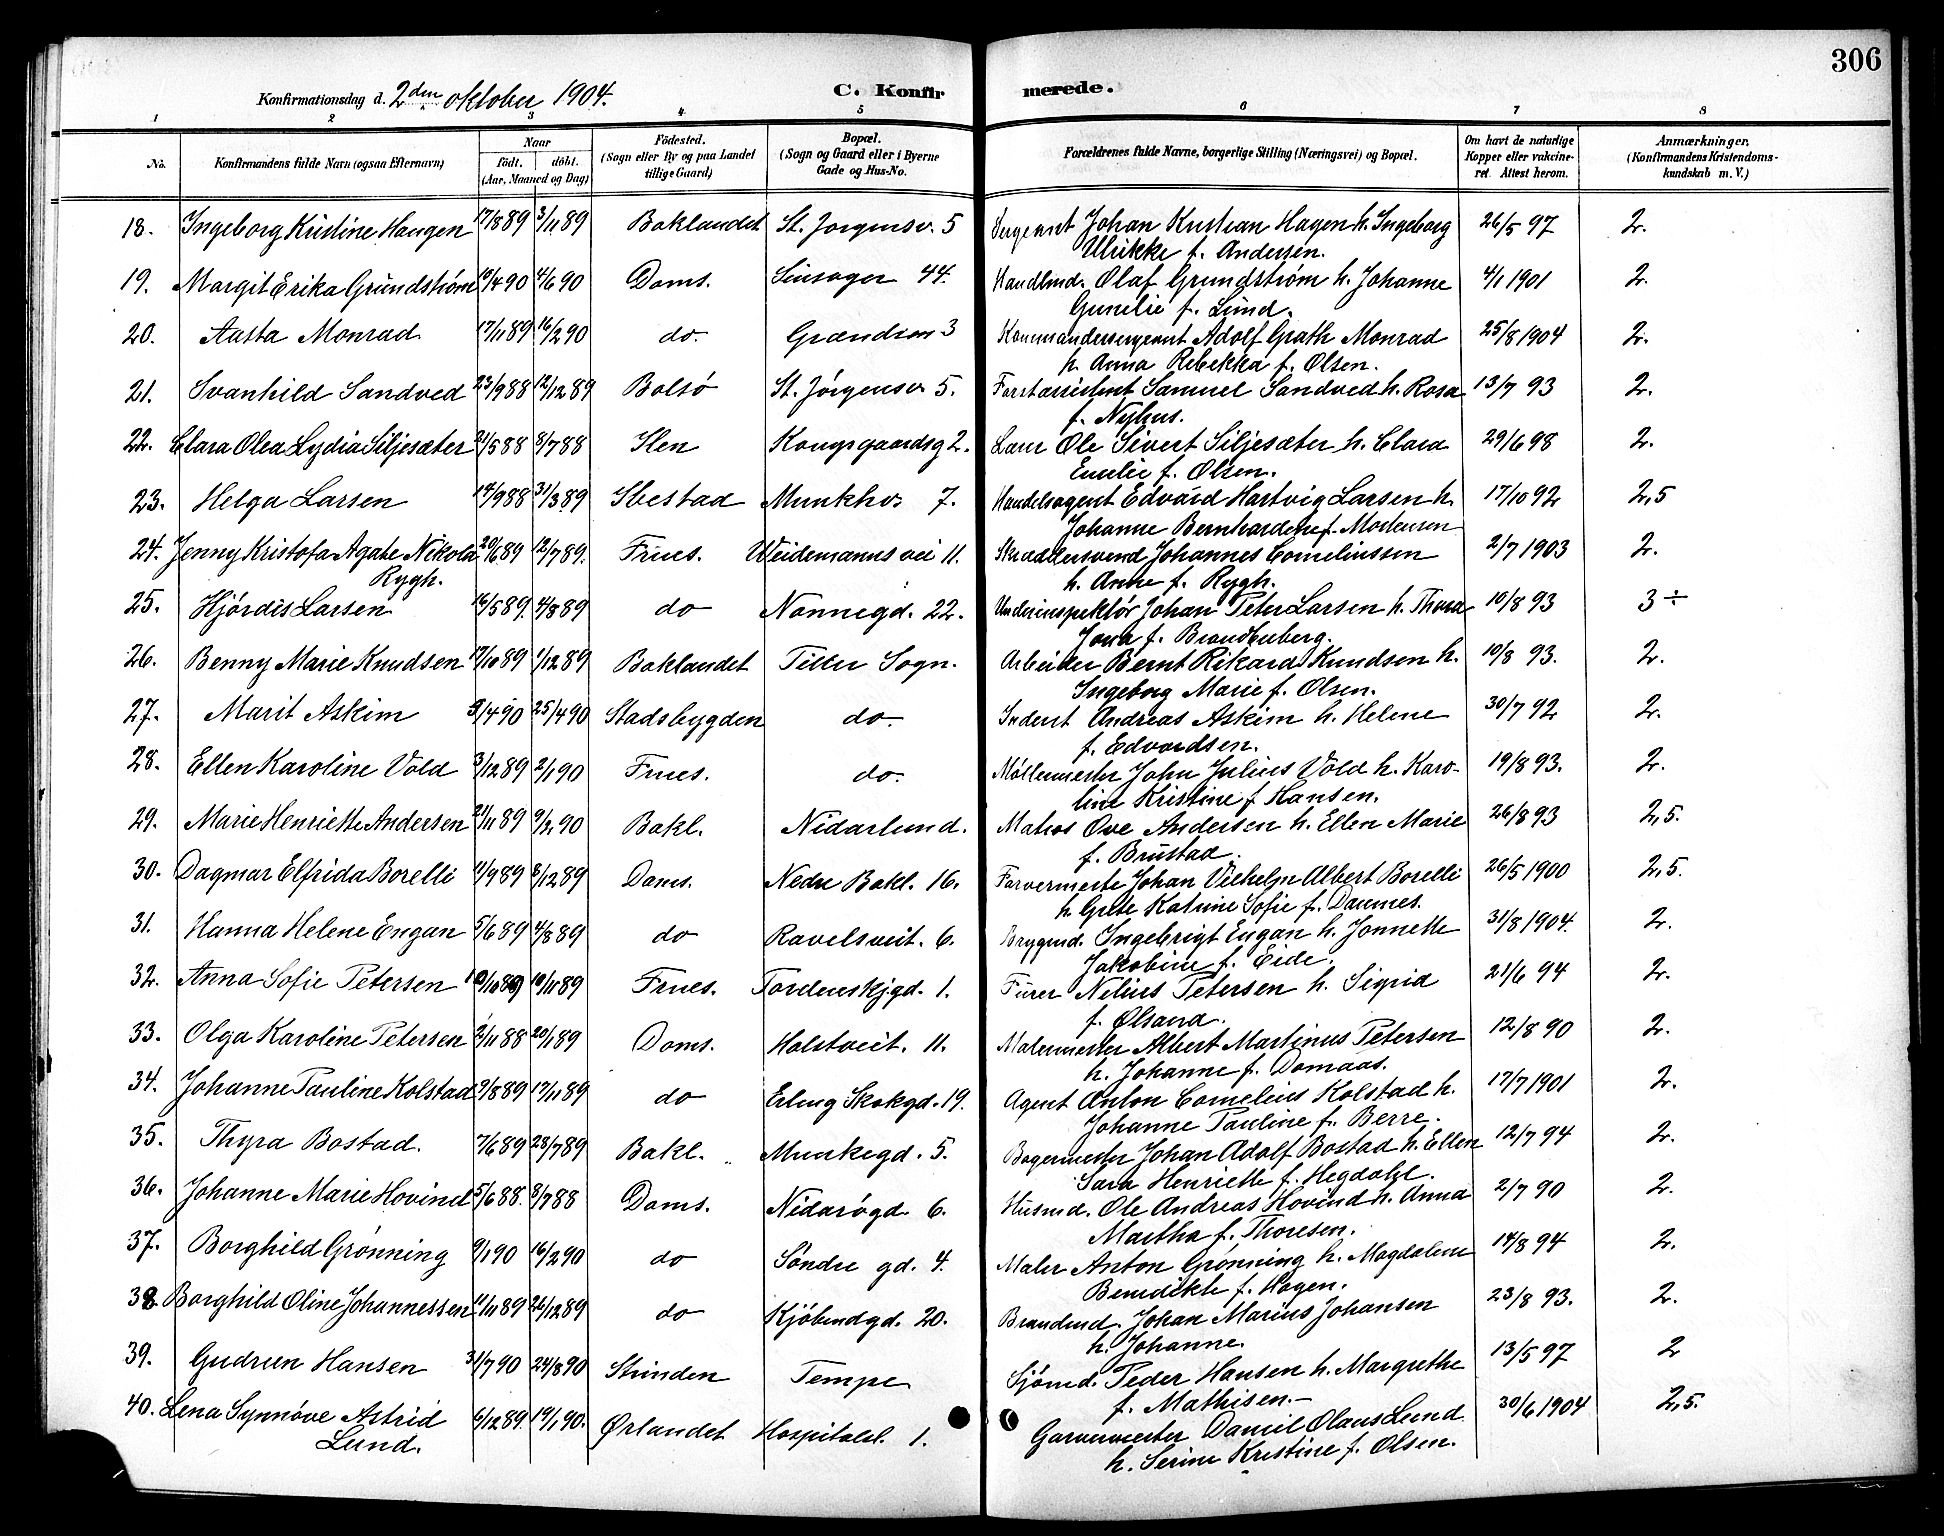 306
Konfirmationsdag d. 2den oktober 1904. C. Konfirmerede.
1 2 3 4 5 6 7 8
No. Konfirmandens fulde Navn (ogsaa Efternavn) Naar födt. döbt. (Aar, Maaned og Dag) Födested. (Sogn eller By og paa Landet tillige Gaard) Bopæl. (Sogn og Gaard eller i Byerne Gade og Hus-No. Forældrenes fulde Navne, borgerlige Stilling (Næringsvei) og Bopæl. Om havt de naturlige Kopper eller vakcineret. Attest herom. Anmærkninger, (Konfirmandens Kristendomskundskab m. V.)
18. Ingeborg Kristine Haugen 17/8 89 3/11 89 Baklandet St. Jørgensv. 5 Sergeant Johan Kristian Hagen h. Ingeborg 26/5 97 2.
Ulrikke f. Andersen.
19. Margit Erika Grundstrøm 4/6 90 Doms. 44. Handlmd. Olaf Grundstrøm h. Johanne 4/1 1901 2.
Gunelie f. Lund.
20. Aasta Monrad 17/11 89 16/2 90 do. Grændsen 3 Kommandersergeant Adolf Grath Monrad 25/8 1904 2.
h. Anna Rebekka f. Olsen.
21. Svanhild Sandved 23/9 88 12/12 89 Bolsö St. Jörgensv 5. Forstassistent Samuel Sandved h. Rosa 13/7 93 2.
f. Nyhus.
22. Clara Olea Lydia Siljesæter 21/5 88 8/7 88 Ilen Kongsgaardsg 2. Ole Sivert Siljesæter h. Clara 29/6 98 2.
Emilie f. Olsen.
23. Helga Larsen 14/9 88 31/3 89 Ibestad Munkhv. 7. Handelsagent Edvard Hartvig Larsen h. 17/10 92 2,5
Johanne Bernhardine f. Mortensen
24. Jenny Kristofa Agate Nikola 20/6 89 12/7 89. Frues. Weidemanns vei 11. Skræddersvend Johannes Corneliussen 2/7 1903 2.
Rygh. h. Anne f. Rygh.
25. Hjördis Larsen 16/5 89. 4/8 89 do Nonnegd. 22. Underinspektör Johan Peter Larsen h. Thora 10/8 93 3÷
f. Brandtenberg.
26. Benny Marie Knudsen 17/10 89 1/12 89 Baklandet Tiller Sogn. Arbeider Bernt Rikard Knudsen h. 10/8 93. 2.
Ingeborg Marie f. Olsen.
27. Marit Askim 3/4 90 25/4 90 Stadsbygden do. Andreas Askim h. Helene 30/7 92 2.
f. Edvardsen.
28. Ellen Karoline Vold 3/12 89 2/1 90 Frues. do. Møllermester John Julius Vold h. Karo- 19/8 93. 2.
line Kristine f. Hansen.
29. Marie Henriette Andersen 21/11 89 9/2 90 Bakl. Nidarlund. Matros Ove Andersen h. Ellen Marie 26/8 93 2,5.
f. Brustad.
30. Dagmar Elfrida Borelli 11/9 89 8/12 89 Doms. Nedre Bakl. 16. Farvermester Johan Vilhelm Albert Borelli 26/5 1900 2,5.
h. Grete Katrine Sofie f. Dannes.
31. Hanna Helene Engan 5/6 89 4/8 89 do Ravelsveit. 6. Bryggmd. Ingebrigt Engan h. Jonnette 31/8 1904. 2.
Jakobine f. Eide.
32. Anna Sofie Petersen 10/11 89 Frues. Tordenskjgd. 1. Furer Nelius Petersen h. Sigrid 21/6 94 2.
f. Ølsand.
33. Olga Karoline Petersen 2/11 88 20/1 89 Doms. Holstveit. 11. Malermester Albert Martinus Petersen 12/8 90 2.
h. Johanne f. Domaas.
34. Johanne Pauline Kolstad 9/8 89 17/11 89 do Erling Skakgd. 19. Agent Anton Cornelius Kolstad h. 17/7 1901 2.
Johanne Pauline f. Berre.
35. Thyra Bostad. 7/6 89 28/7 89 Bakl. Munkegd. 5. Bagermester Johan Adolf Bostad h. Ellen 12/7 94 2.
Sara Henriette f. Hegdahl.
36. Johanne Marie Hovind 5/6 88. 8/7 88 Doms. Nidarögd. 6. Husmd. Ole Andreas Hovind h. Anna 2/7 90 2.
Martha f. Thoresen.
37. Borghild Grønning 9/1 90 16/2 90 do Söndre gd. 4. Maler Anton Grönning h. Magdalene 14/8 94 2.
Benedikte f. Hagen.
38. Borghild Oline Johannessen 11/11 89 26/12 89 do Kjöbmdgd. 20. Brandmd. Johan Marius Johansen 23/8 93. 2.
h. Johanne.
39. Gudrun Hansen 31/7 90 24/8 90 Strinden Tempe Sjömd. Peder Hansen h. Margrethe 13/5 97 2
f. Mathisen.
40. Lena Synnöve Astrid 6/12 89. 19/1 90. Ørlandet Hospitalsl. 1. Garvermester Daniel Olaus Lund 30/6 1904 2,5.
Lund. h. Serine Kristine f. Olsen.